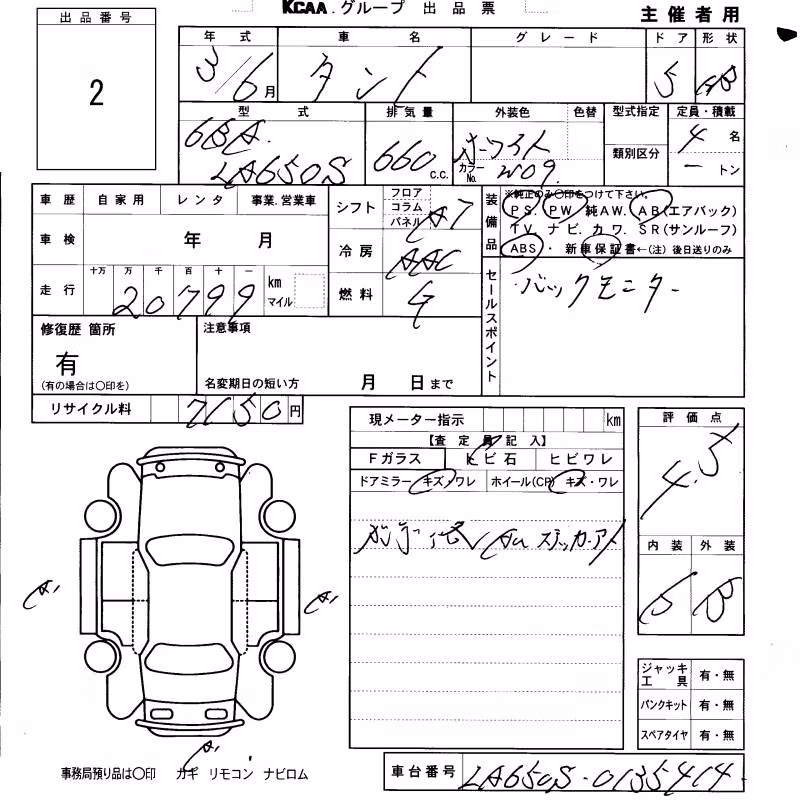 KCAA.グループ 出品票
主催者用
出品番号
2
年式 車名 グレード ドア 形状
3/6月 タント 5
型式 排気量 外装色 色替 型式指定 定員・積載
6BA 660 c.c. ホワイト 4名
LA650S カラーNo. W09 類別区分 ートン
車歴 自家用 レンタ 事業.営業車
シフト フロア コラム パネル AT
装備品
※純正のみ○印をつけて下さい。
PS. PW. 純AW. AB(エアバック)
TV. ナビ. カワ. SR(サンルーフ)
ABS・ 新車保証書←(注) 後日送りのみ
車検 年 月
冷房 AAC
走行 十万 万 千 百 十 一
20799 km マイル
燃料 G
セールスポイント
バックモニター
修復歴 箇所
有
(有の場合は○印を)
注意事項
名変期日の短い方 月 日まで
リサイクル料 7150円
現メーター指示 km
【査定員記入】
Fガラス トビ石 ヒビワレ
ドアミラー キズ・ワレ ホイール(CP) キズ・ワレ
評価点
4.5
内装 外装
B B
A1
A1
A1
ジャッキ工具 有・無
パンクキット 有・無
スペアタイヤ 有・無
事務局預り品は○印 カギ リモコン ナビロム
車台番号 LA650S-0135414